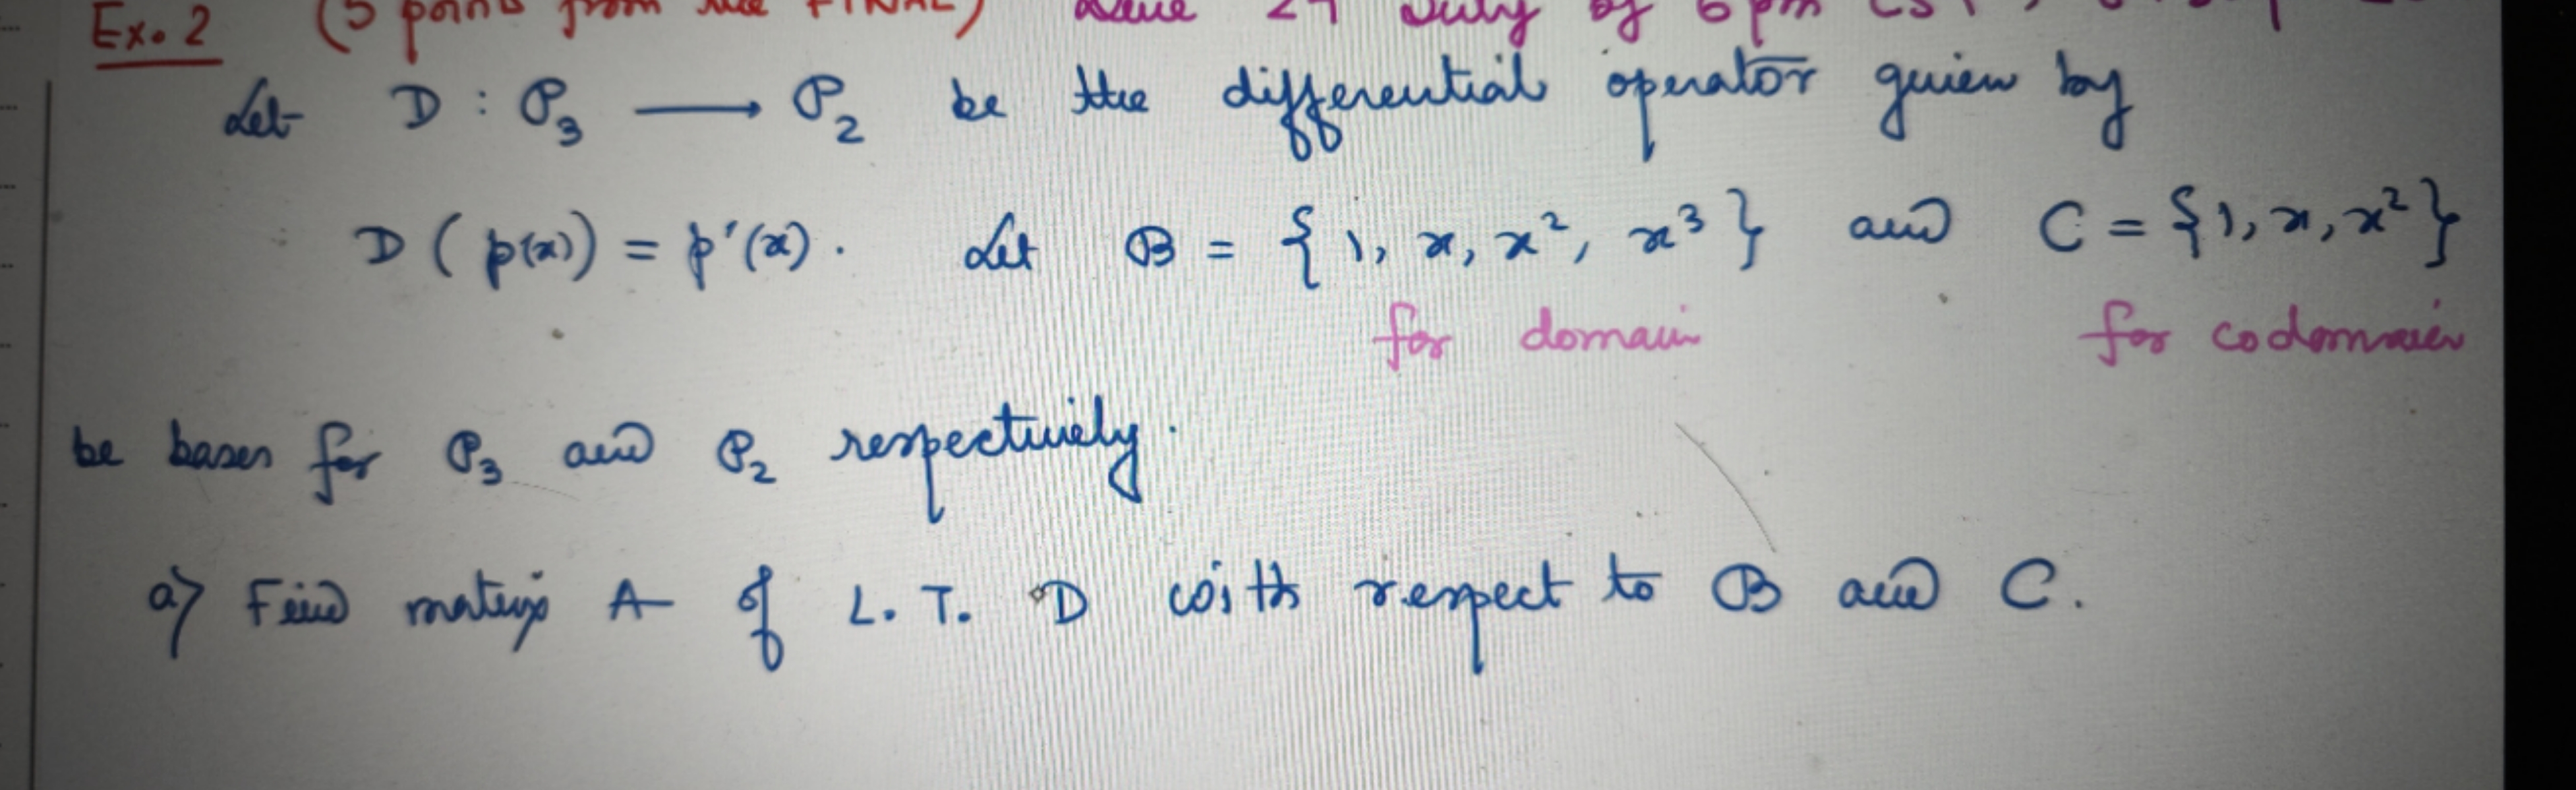 Ex. 2 (5 points from the FINAL) 29 July by 6 pm CST,
Let D : P₃ ⟶ P₂ be the differential operator given by
D ( p(x) ) = p'(x) . Let B = { 1, x, x², x³ } and C = { 1, x, x² }
for domain for codomain
be bases for P₃ and P₂ respectively.
a) Find matrix A of L. T. D with respect to B and C.